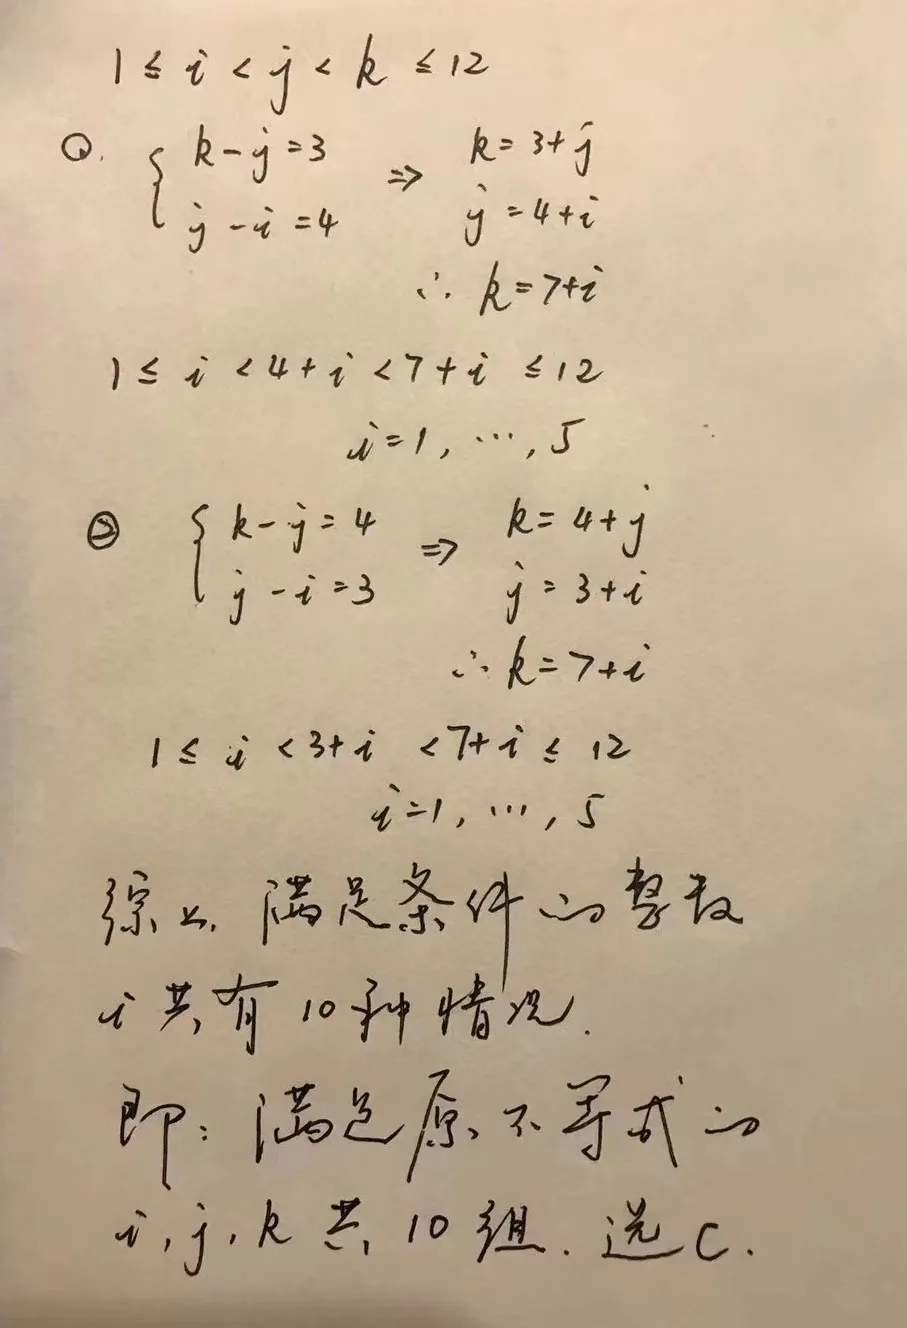 1 ≤ i < j < k ≤ 12
①. { k - j = 3 ⇒ k = 3 + j
j - i = 4 j = 4 + i
∴ k = 7 + i
1 ≤ i < 4 + i < 7 + i ≤ 12
i = 1, ⋯, 5
② { k - j = 4 ⇒ k = 4 + j
j - i = 3 j = 3 + i
∴ k = 7 + i
1 ≤ i < 3 + i < 7 + i ≤ 12
i = 1, ⋯, 5
综上, 满足条件的整数
i 共有 10 种情况.
即: 满足原不等式的
i, j, k 共 10 组. 选 C.